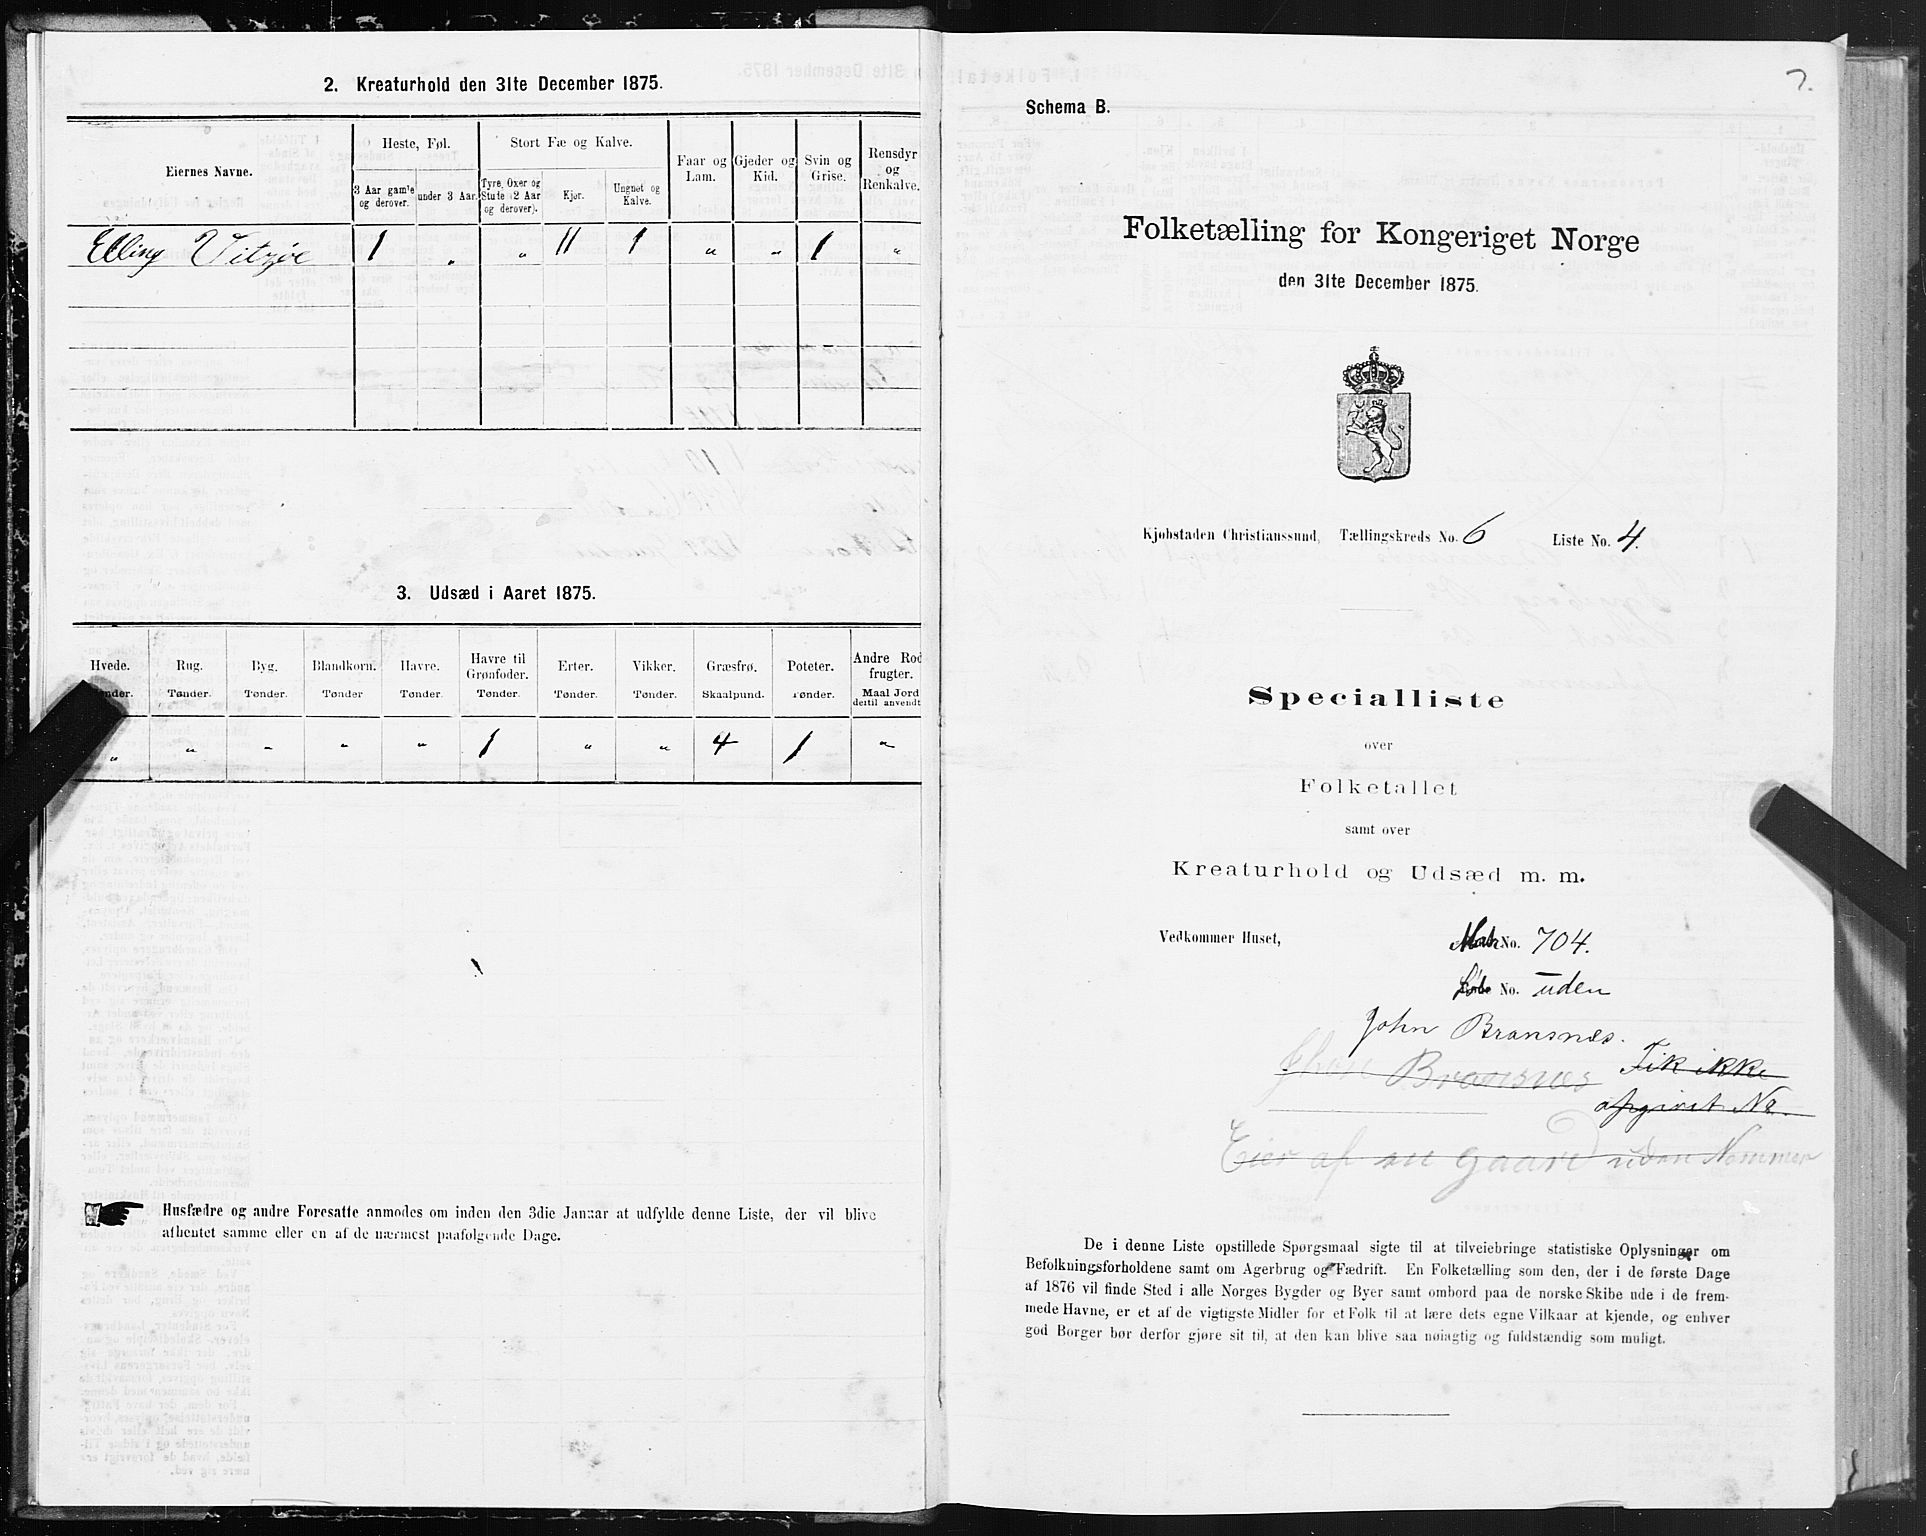 2. Kreaturhold den 31te December 1875.
Eiernes Navne.
Heste, Føl.
Stort Fæ og Kalve.
Faar og Lam.
Gjeder og Kid.
Svin og Grise.
Rensdyr og Renkalve.
3 Aar gamle og derover.
under 3 Aar.
Tyre, Oxer og Stute (2 Aar og derover).
Kjør.
Ungnet og Kalve.
Elling Vitzøe 1 „ „ 11 1 „ „ 1 „
3. Udsæd i Aaret 1875.
Hvede. Rug. Byg. Blandkorn. Havre. Havre til Grønfoder. Erter. Vikker. Græsfrø. Poteter. Andre Rodfrugter.
Tønder. Tønder. Tønder. Tønder Tønder. Tønder. Tønder. Tønder. Skaalpund. Tønder. Maal Jord dertil anvendt.
„ „ „ „ „ 1 „ „ 4 1 „
Husfædre og andre Foresatte anmodes om inden den 3die Januar at udfylde denne Liste, der vil blive
afhentet samme eller en af de nærmest paafølgende Dage.
7.
Schema B.
Folketælling for Kongeriget Norge
den 31te December 1875.
Kjøbstaden Christianssund, Tællingskreds No. 6 Liste No. 4.
Specialliste
over
Folketallet
samt over
Kreaturhold og Udsæd m. m.
Vedkommer Huset, No. 704.
No. uden
John Bransnes.
Bransnes Fik ikke
opgivet No.
Eier af en gaard uden Nommer
De i denne Liste opstillede Spørgsmaal sigte til at tilveiebringe statistiske Oplysninger om
Befolkningsforholdene samt om Agerbrug og Fædrift. En Folketælling som den, der i de første Dage
af 1876 vil finde Sted i alle Norges Bygder og Byer samt ombord paa de norske Skibe ude i de frem-
mede Havne, er et af de vigtigste Midler for et Folk til at lære dets egne Vilkaar at kjende, og enhver
god Borger bør derfor gjøre sit til, at den kan blive saa nøiagtig og fuldstændig som muligt.